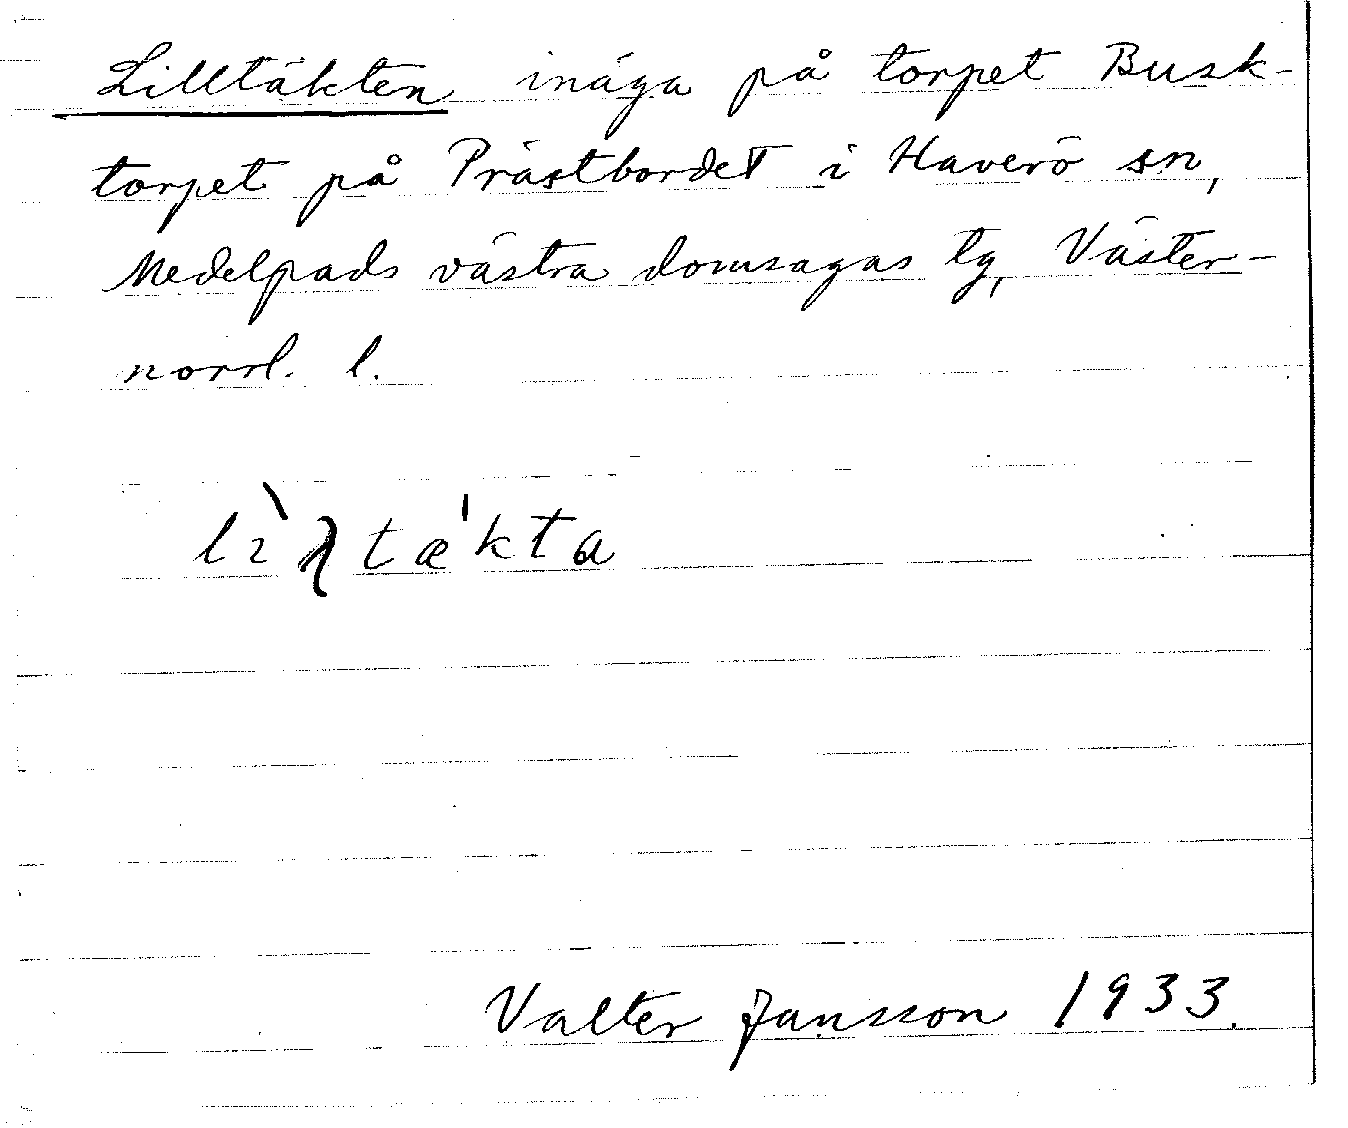 Lilltäkten inäga på torpet Busk-
torpet på Prästbordet i Haverö sn,
Medelpads västra domsagas tg, Väster-
norrl. l.
Valter Jansson 1933.